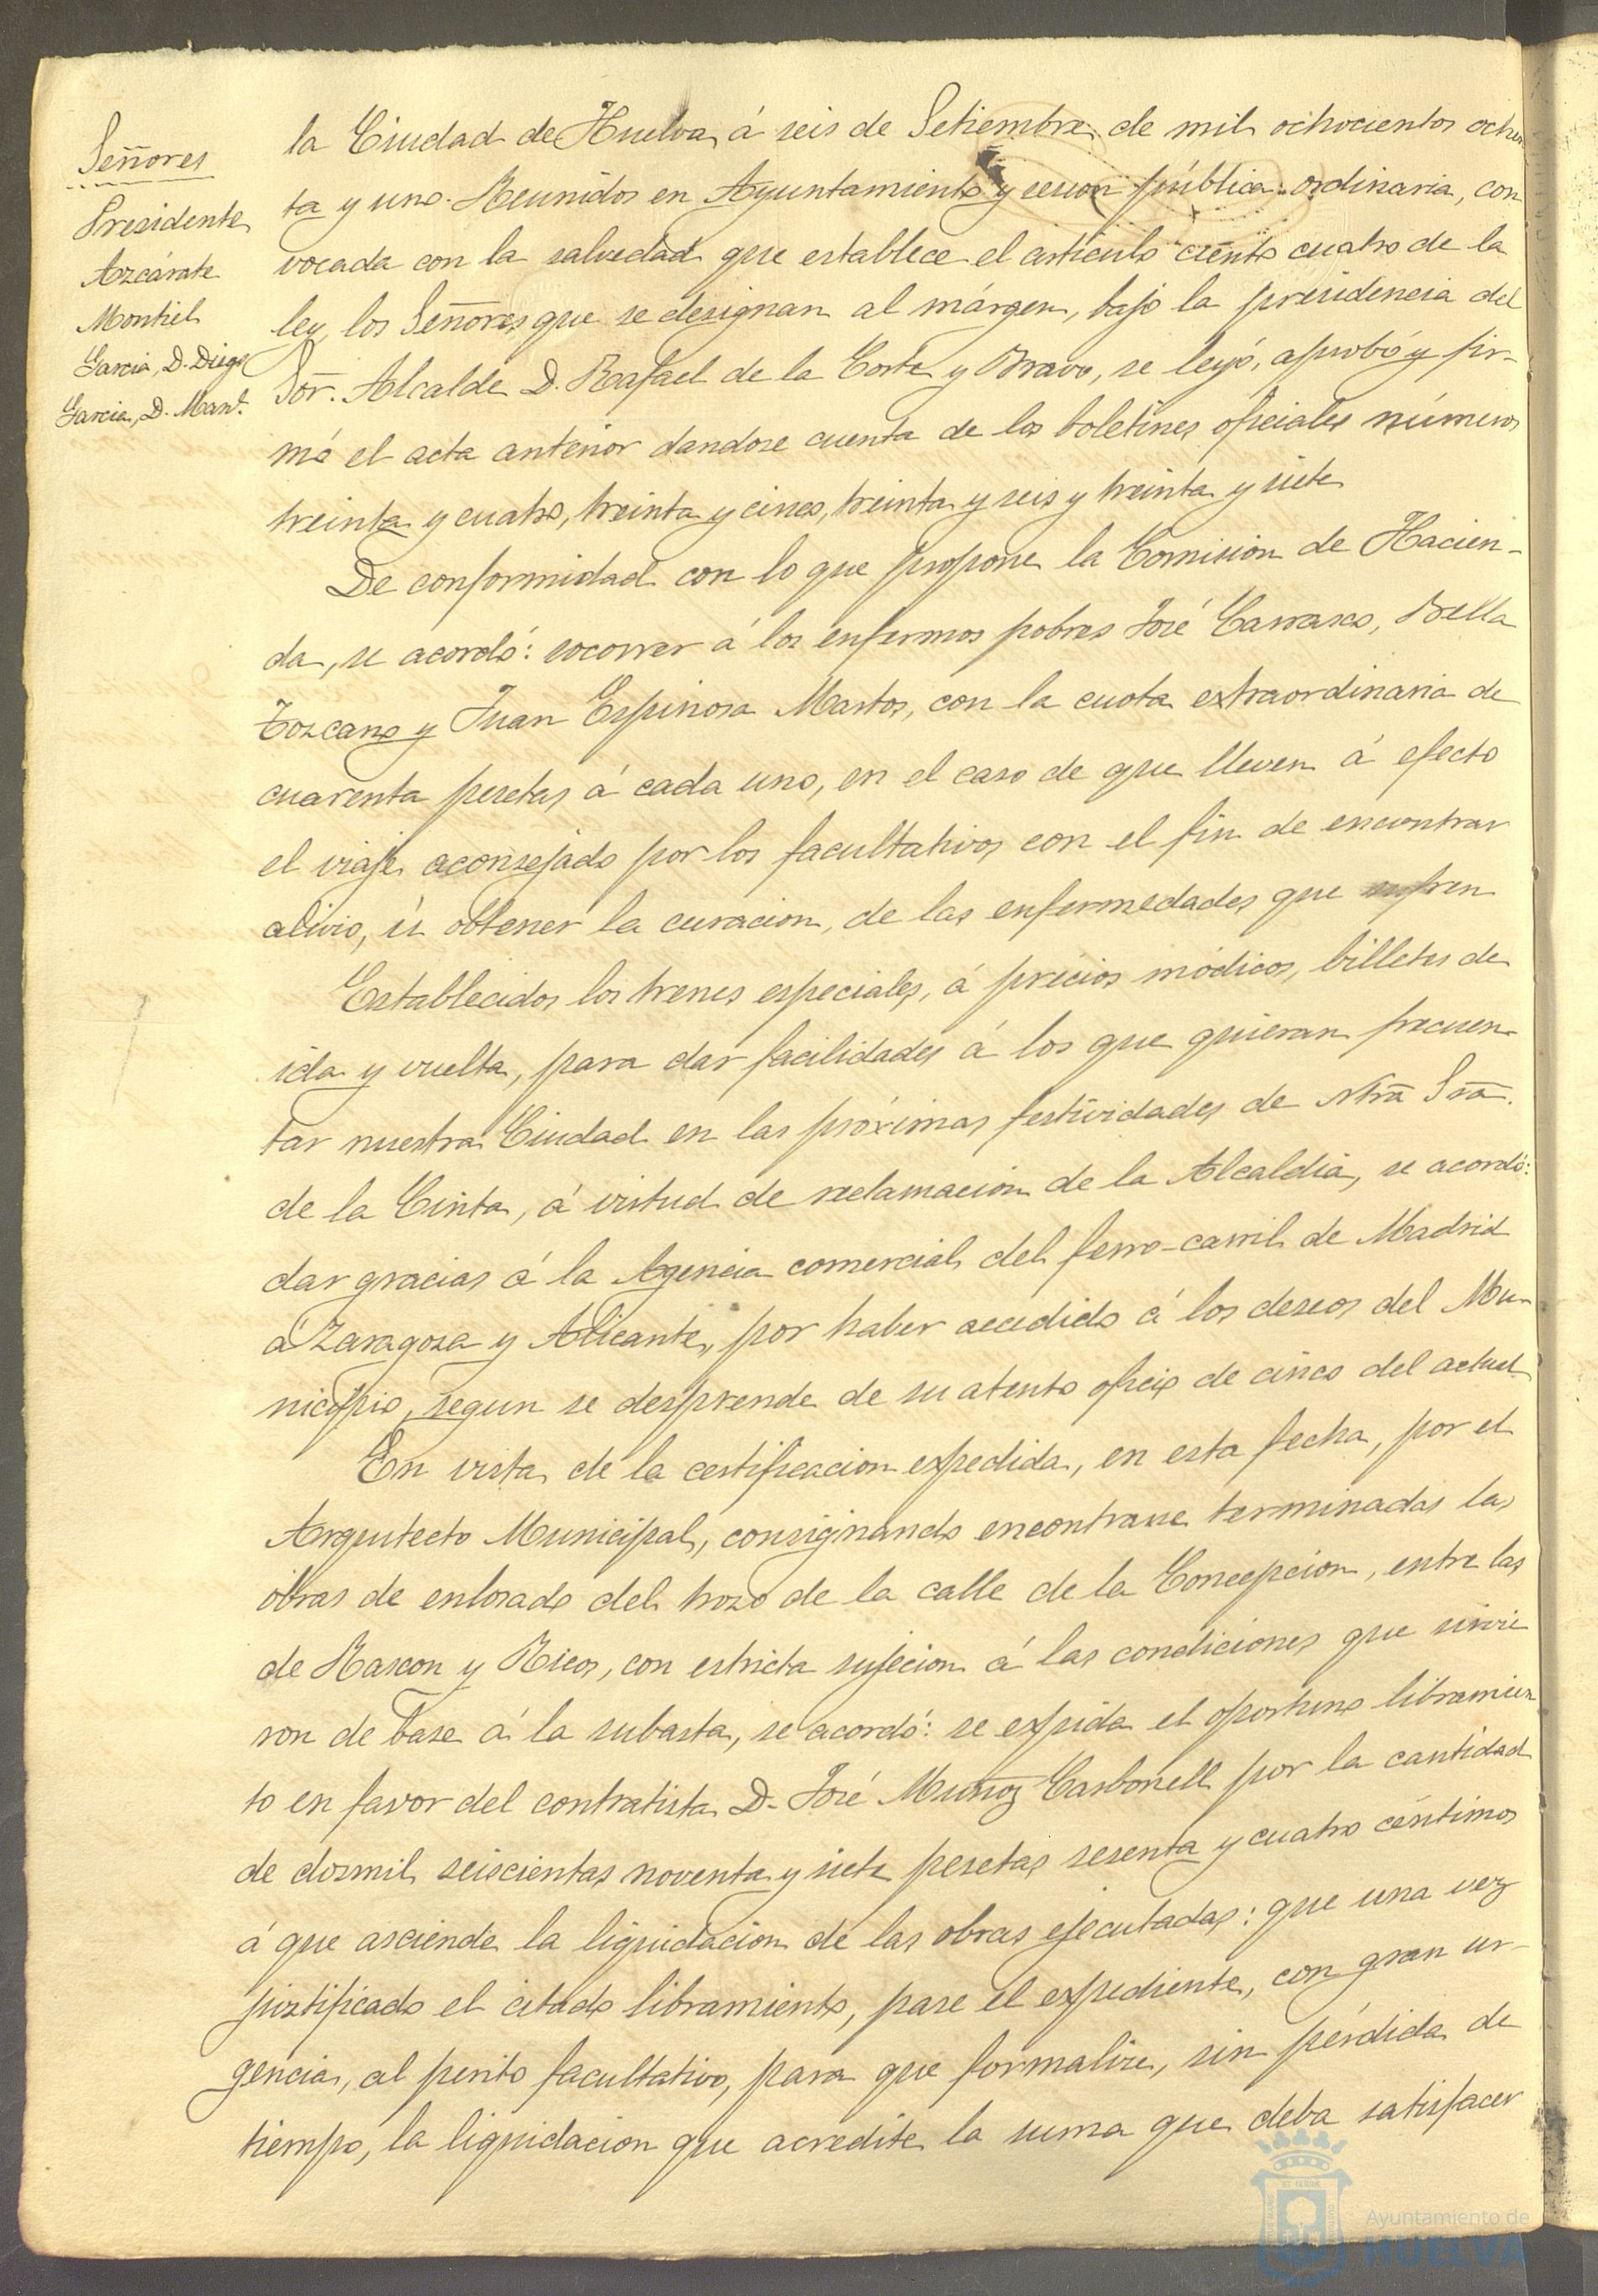 Señores
Presidente
Azcárate
Montiel
Garcia, D. Diego
Garcia, D. Man.l
la Ciudad de Huelva, á seis de Setiembre de mil ochocientos ochen
ta y uno. Reunidos en Ayuntamiento y sesion pública ordinaria, con
vocada con la salvedad que establece el artículo ciento cuatro de la
ley, los Señores que se designan al márgen, bajo la presidencia del
Sor. Alcalde D. Rafael de la Corte y Bravo, se leyó, aprobó y fir-
mó el acta anterior dandose cuenta de los boletines oficiales números
treinta y cuatro, treinta y cinco, treinta y seis y treinta y siete
De conformidad con lo que propone la Comision de Hacien-
da, se acordó: socorrer á los enfermos pobres José Carrasco, Bella
Tozcano y Juan Espinosa Martos, con la cuota extraordinaria de
cuarenta pesetas á cada uno, en el caso de que lleven á efecto
el viaje aconsejado por los facultativos con el fin de encontrar
alivio, ú obtener la curacion, de las enfermedades que sufren
Establecidos los trenes especiales, á precios módicos, billetes de
ida y vuelta, para dar facilidades á los que quieran frecuen-
tar nuestra Ciudad en las próximas festividades de Ntrā Srā.
de la Cinta, á virtud de reclamacion de la Alcaldia, se acordó:
dar gracias á la Agencia comercial del ferro-carril de Madrid
á Zaragoza y Alicante, por haber accedido á los deseos del Mu-
nicipio, segun se desprende de su atento oficio de cinco del actual
En vista de la certificacion expedida, en esta fecha, por el
Arquitecto Municipal, consignando encontrarse terminadas las
obras de enlosado del trozo de la calle de la Concepcion, entre las
de Rascon y Ricos, con estricta sujecion á las condiciones que sirvie
ron de base á la subasta, se acordó: se expida el oportuno libramien
to en favor del contratista D. José Muñoz Carbonell por la cantidad
de dosmil seiscientas noventa y siete pesetas sesenta y cuatro céntimos
á que asciende la liquidacion de las obras ejecutadas: que una vez
justificado el citado libramiento, pase el expediente, con gran ur-
gencia, al perito facultativo, para que formalize, sin pérdida de
tiempo, la liquidacion que acredite la suma que deba satisfacer
Ayuntamiento de
HUELVA